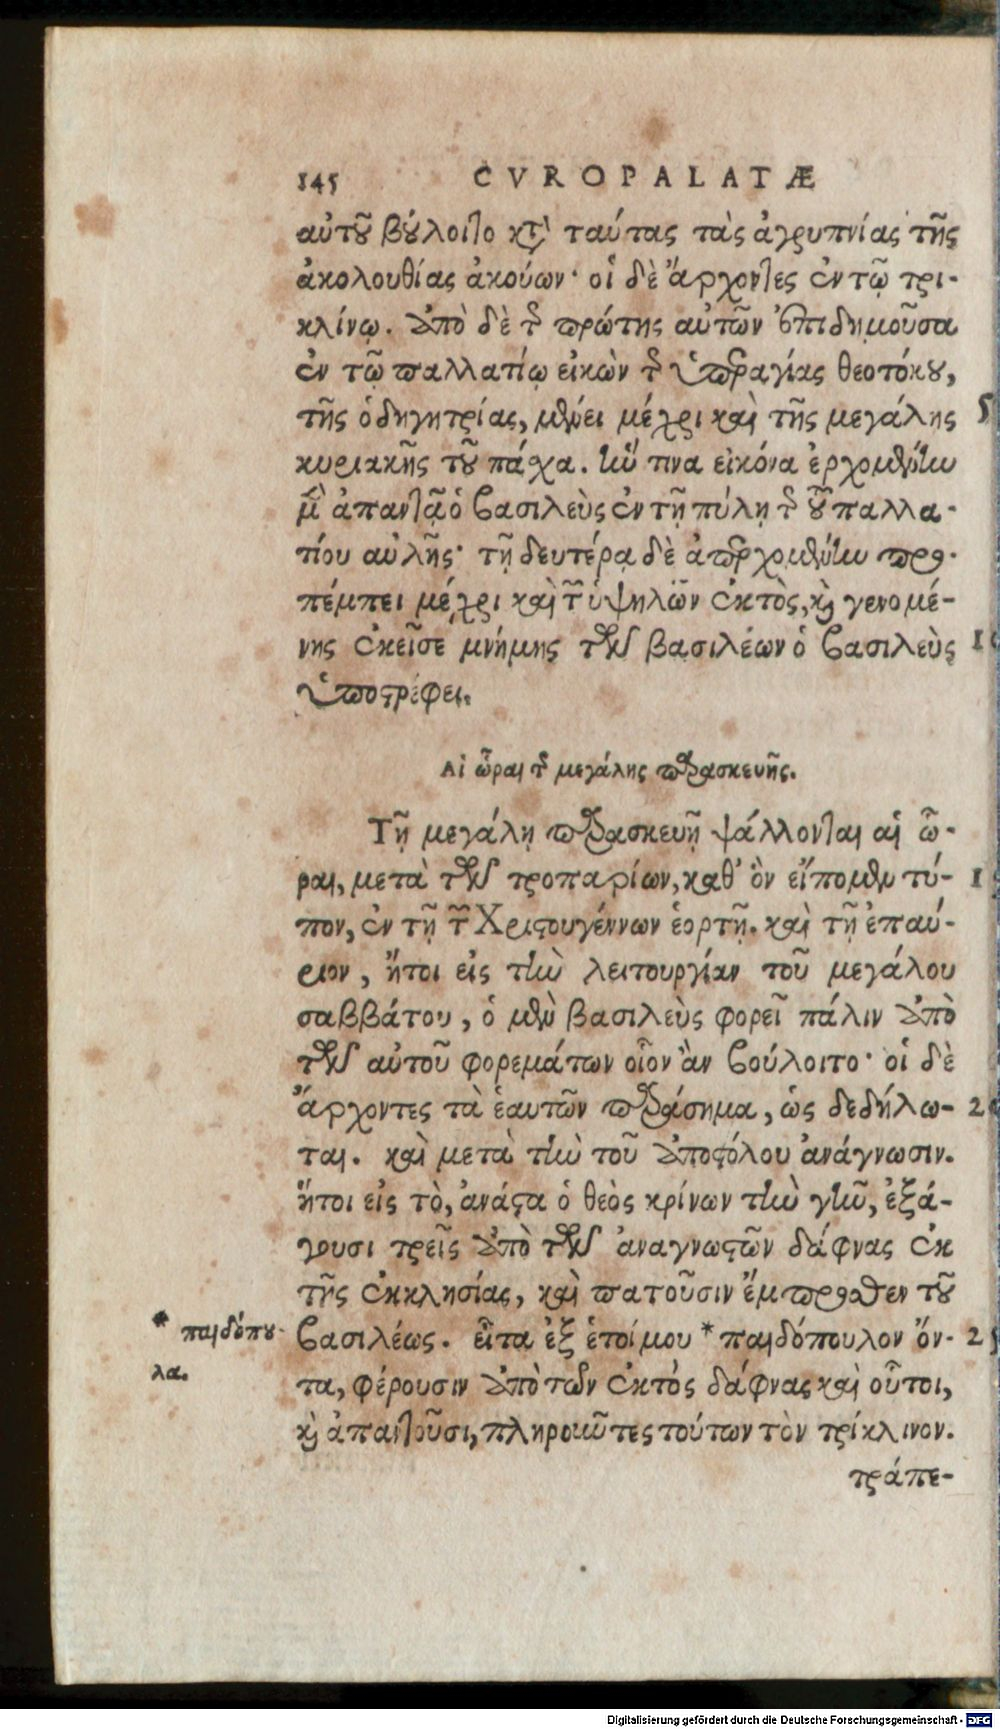 145 CVROPALATÆ
αὐτοῦ βούλοιτο κατὰ ταύτας τὰς ἀγρυπνίας τῆς
ἀκολουθίας ἀκούων· οἱ δὲ ἄρχοντες ἐν τῷ τρι-
κλίνῳ. ἀπὸ δὲ τῆς πρώτης αὐτῶν ἐπιδημοῦσα
ἐν τῷ παλλατίῳ εἰκὼν τῆς ὑπεραγίας θεοτόκου,
τῆς ὁδηγητρίας, μένει μέχρι καὶ τῆς μεγάλης 5
κυριακῆς τοῦ πάσχα. ἣν τινα εἰκόνα ἐρχομένην
μὲν ἀπαντᾷ ὁ βασιλεὺς ἐν τῇ πύλῃ τῆς τοῦ παλλα-
τίου αὐλῆς· τῇ δευτέρᾳ δὲ ἀπερχομένην προ-
πέμπει μέχρι καὶ τῶν ὑψηλῶν ἐκτὸς, καὶ γενομέ-
νης ἐκεῖσε μνήμης τῶν βασιλέων ὁ βασιλεὺς 10
ὑποστρέφει.
Αἱ ὧραι τῆς μεγάλης παρασκευῆς.
Τῇ μεγάλῃ παρασκευῇ ψάλλονται αἱ ὧ-
ραι, μετὰ τῶν τροπαρίων, καθ' ὃν εἴπομεν τύ- 15
πον, ἐν τῇ τῶν Χριστουγέννων ἑορτῇ. καὶ τῇ ἐπαύ-
ριον, ἤτοι εἰς τὴν λειτουργίαν τοῦ μεγάλου
σαββάτου, ὁ μὲν βασιλεὺς φορεῖ πάλιν ἀπὸ
τῶν αὐτοῦ φορεμάτων οἷον ἂν βούλοιτο· οἱ δὲ
ἄρχοντες τὰ ἑαυτῶν παράσημα, ὡς δεδήλω- 20
ται. καὶ μετὰ τὴν τοῦ ἀποστόλου ἀνάγνωσιν.
ἤτοι εἰς τὸ, ἀνάστα ὁ θεὸς κρίνων τὴν γῆν, ἐξά-
γουσι τρεῖς ἀπὸ τῶν ἀναγνωστῶν δάφνας ἐκ
τῆς ἐκκλησίας, καὶ πατοῦσιν ἔμπροσθεν τοῦ
* παιδόπου-
λα.
βασιλέως. εἶτα ἐξ ἑτοίμου *παιδόπουλον ὄν- 25
τα, φέρουσιν ἀπὸ τῶν ἐκτὸς δάφνας καὶ οὗτοι,
καὶ ἀπαντοῦσι, πληροῦντες τούτων τὸν τρίκλινον.
τράπε-
Digitalisierung gefördert durch die Deutsche Forschungsgemeinschaft - DFG